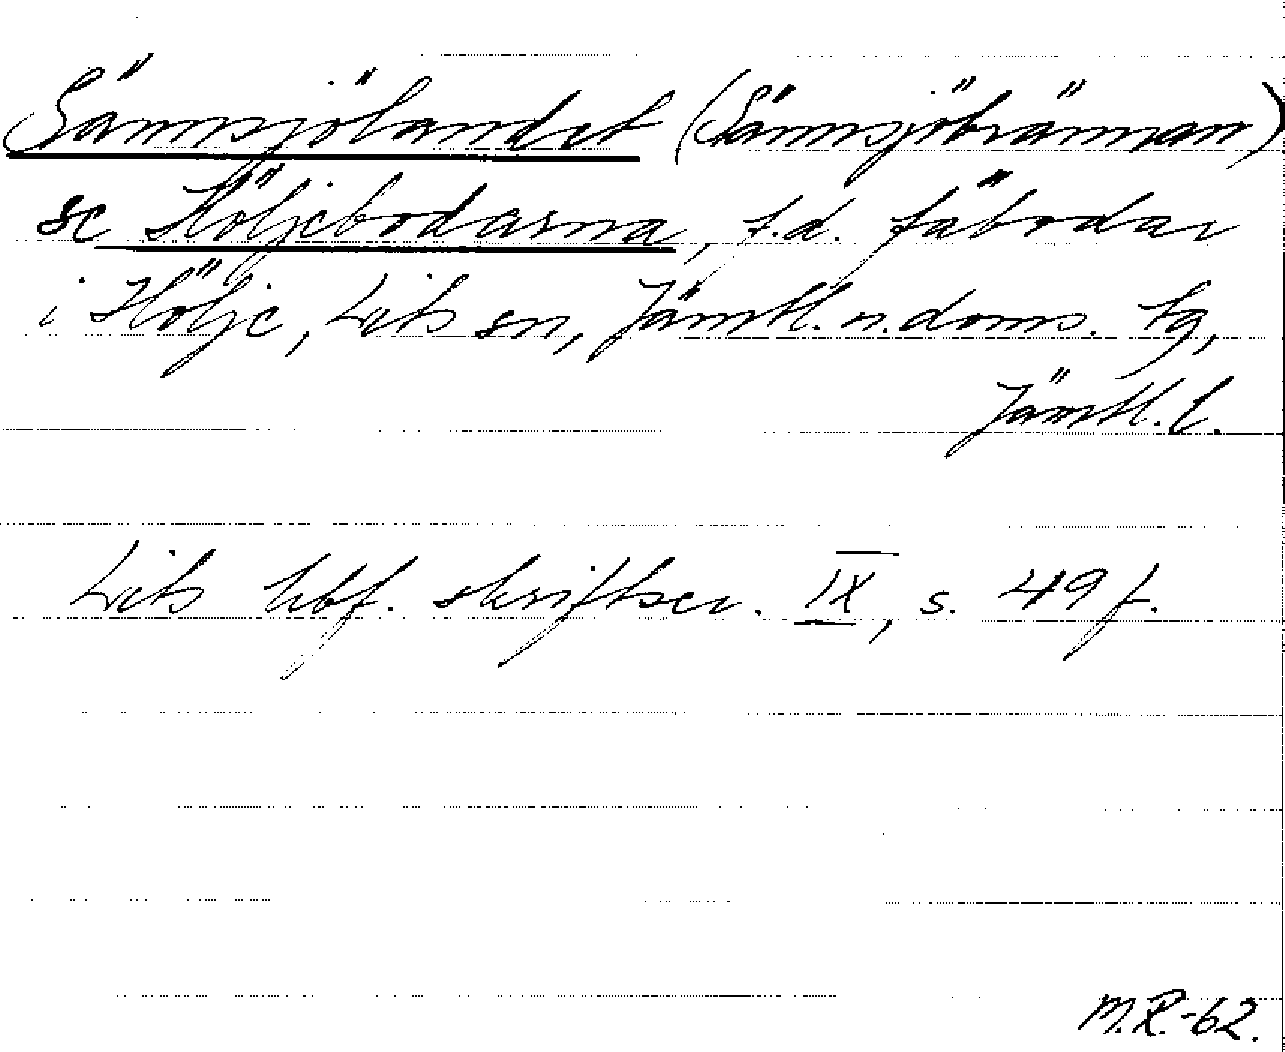 Sännsjölandet (Sännsjöbrännan)
se Höljebodarna, f.d. fäbodar
i Hölje, Lits sn, Jämtl. n. doms. tg,
Jämtl. l.
Lits hbf. skriftser. IX, s. 49 f.
M.R.-62.